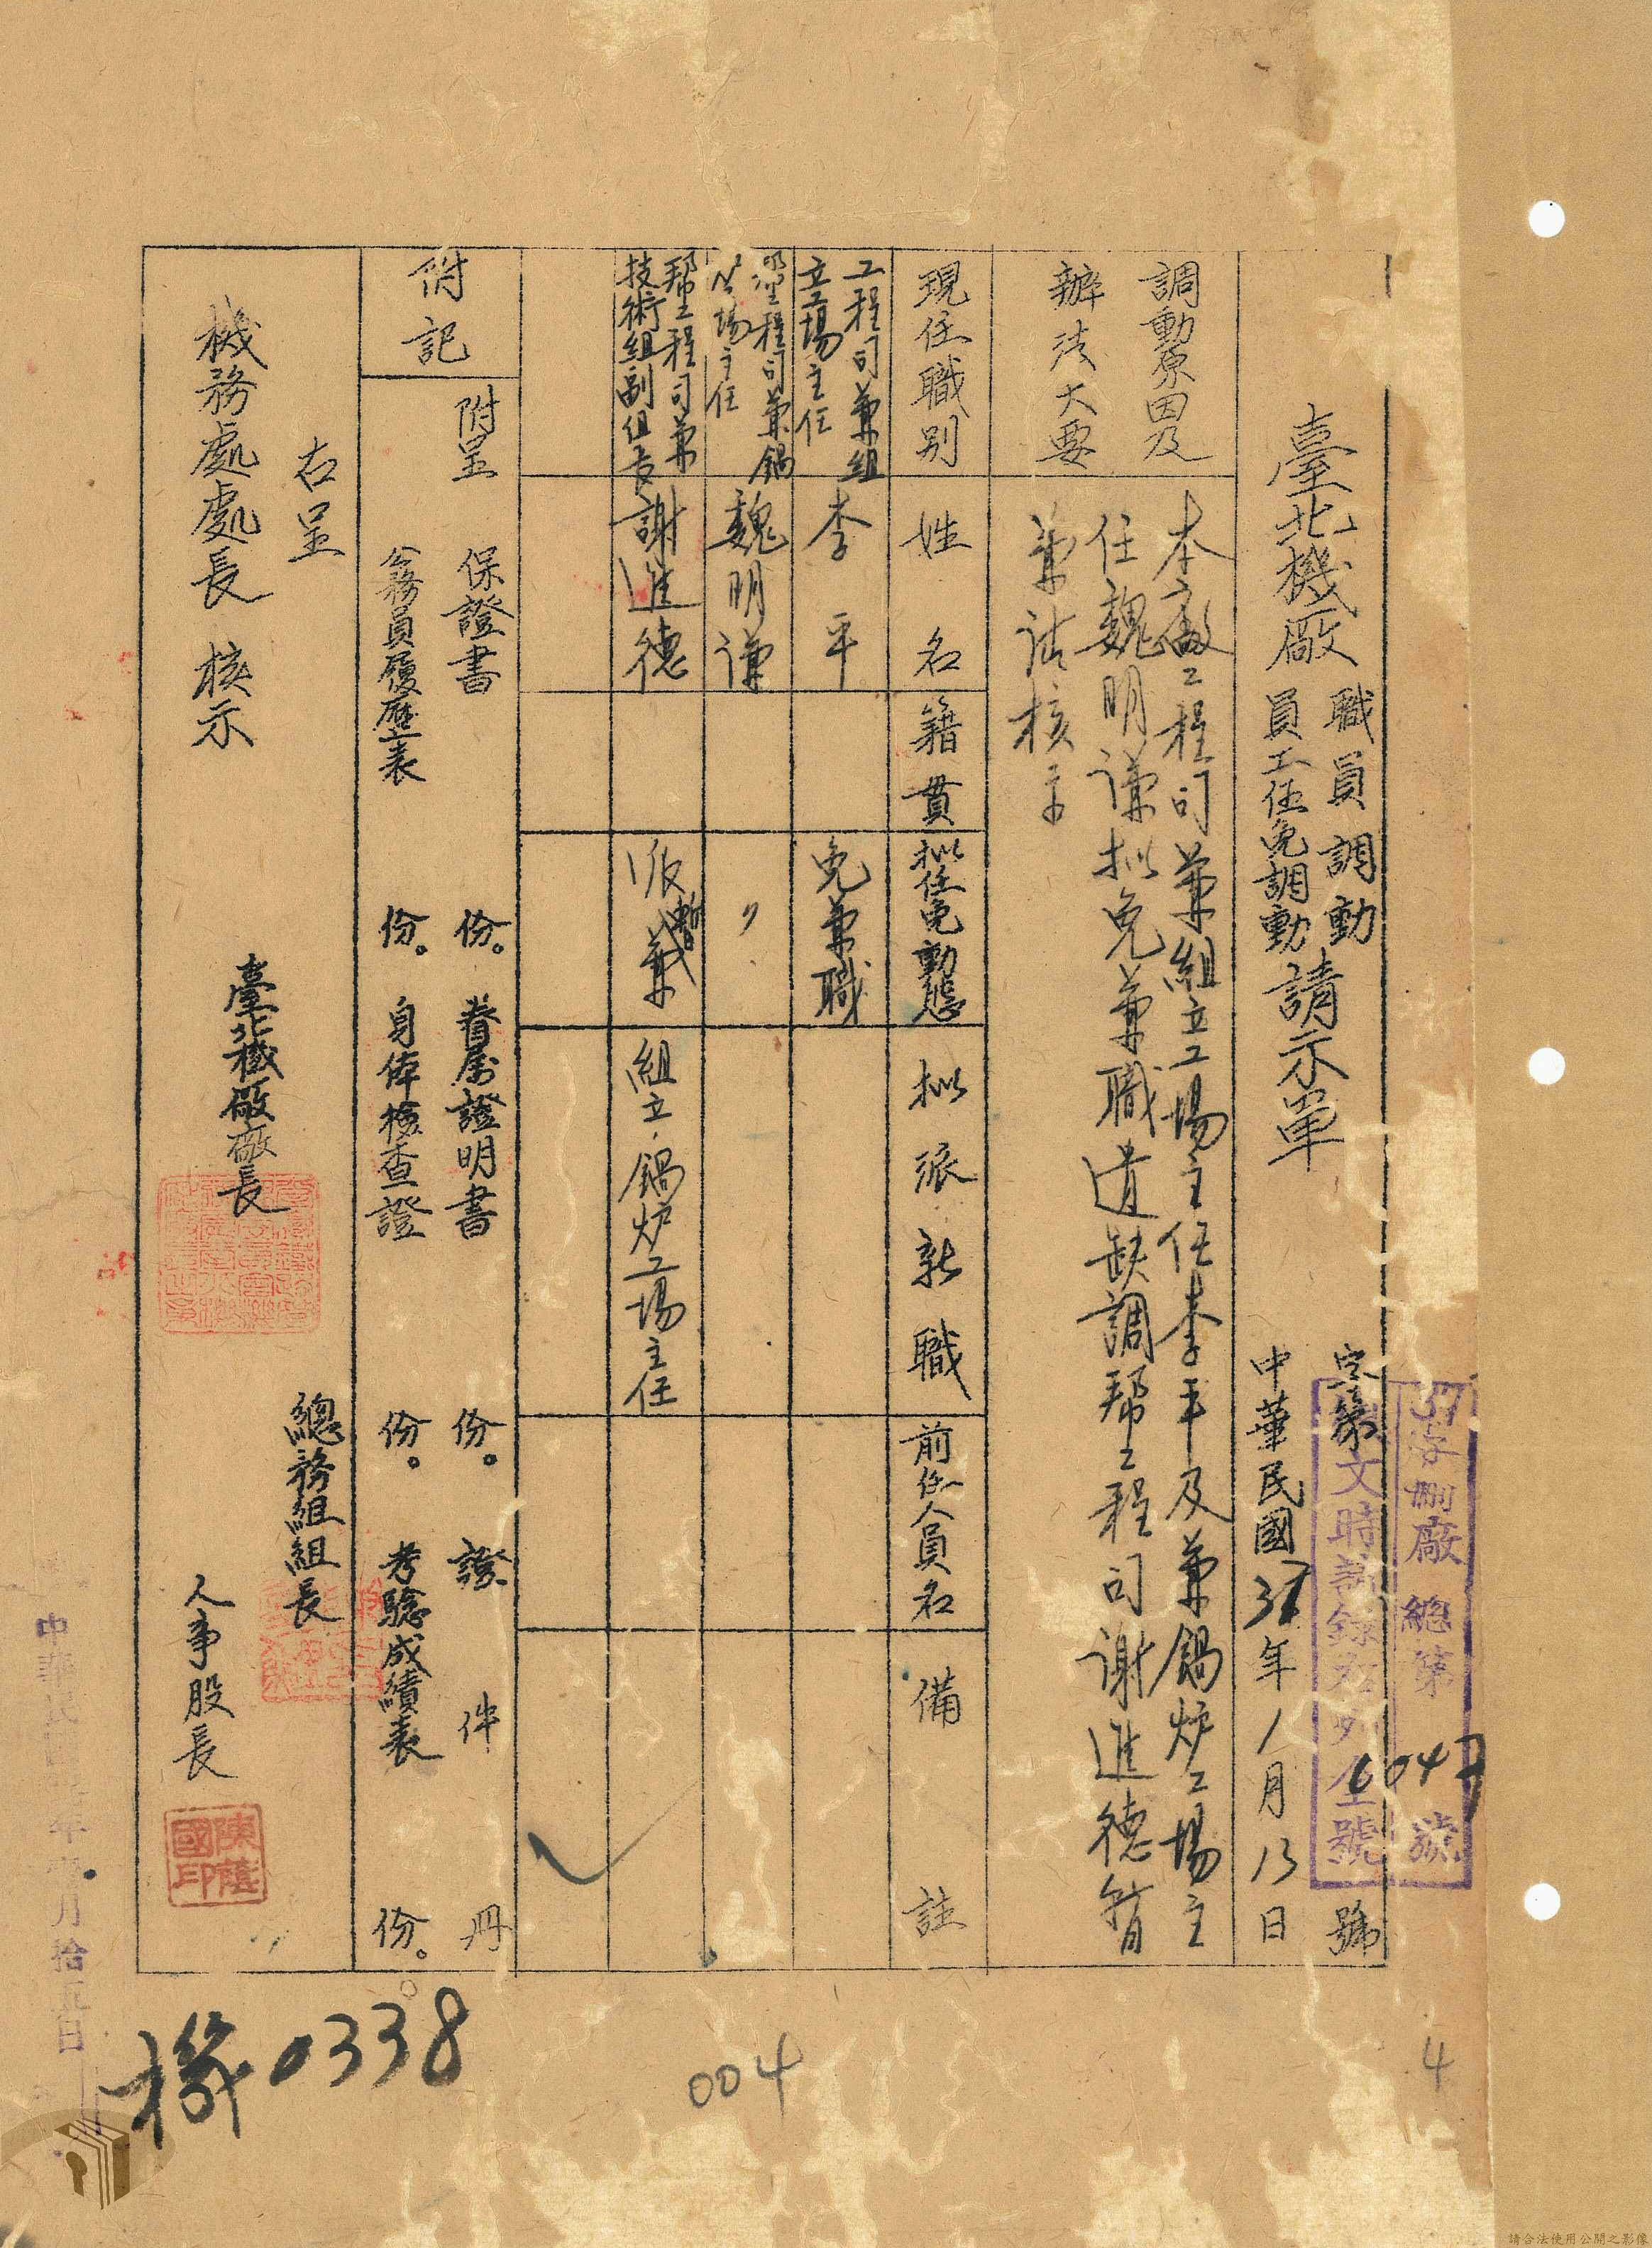 臺北機廠 職員調動 員工任免調動 請示單
字第 號
中華民國37年1月13日
37字 廠 總第 6047 號
文時 錄 列 全號
調動原因及
辦法大要
本廠工程司兼組立工場主任李平及兼鍋炉工場主
任魏明谦拟免兼職遺缺調幫工程司谢進德暫
兼請核示
現任職别
姓名
籍貫
拟任免動態
拟派新職
前任人員名
備註
工程司兼組
立工場主任
李平
免兼職
幫工程司兼鍋
炉工場主任
魏明谦
〃
幫工程司兼
技術組副组長
謝進德
派暫兼
組立·鍋炉工場主任
附記
附呈 保證書 份。眷屬證明書 份。證件 冊
公務員履歷表 份。身体檢查證 份。考驗成績表 份。
右呈
機務處處長 核示
臺北機廠廠長
總務組組長
人事股長
陳蔭國印
中華民國 年 月拾五日
機0338
004
4
請合法使用公開之影像